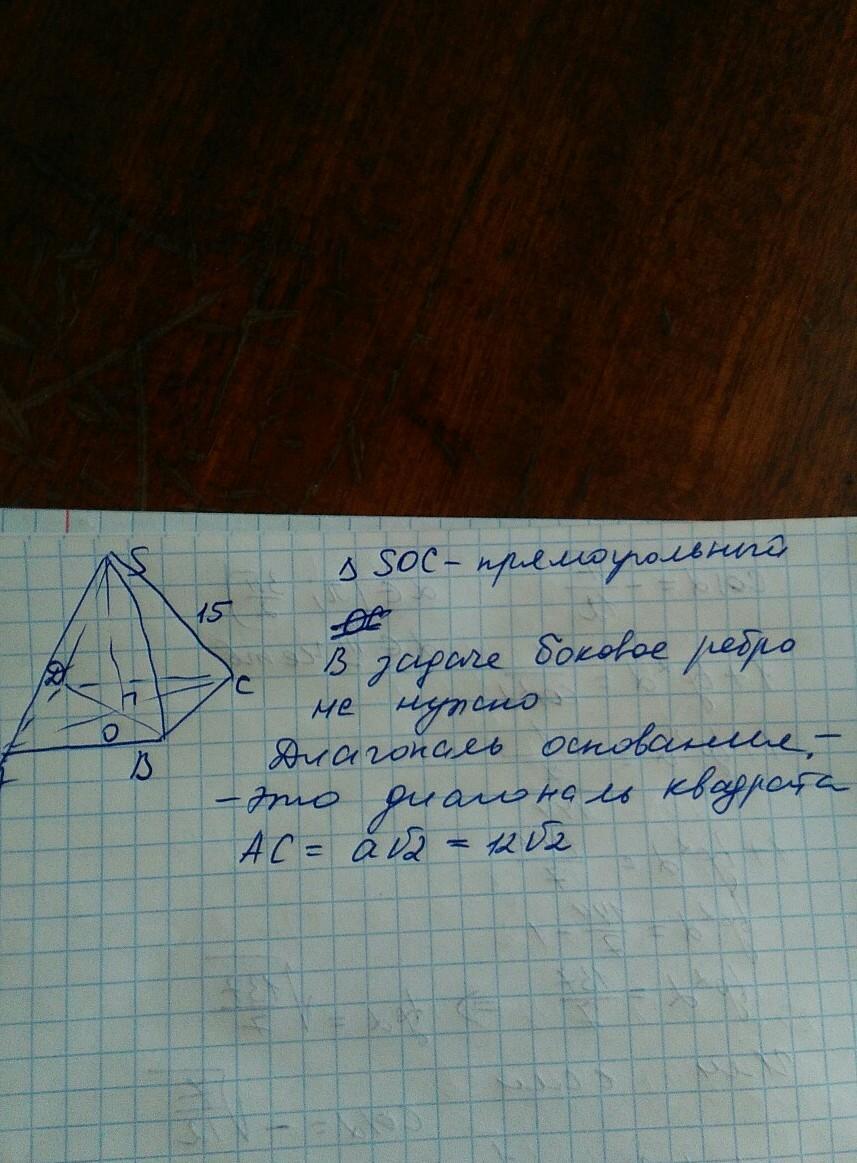 S
15
D
C
O
B
Δ SOC - прямоугольный
В задаче боковое ребро
не нужно
Диагональ основания, -
- это диагональ квадрата
AC = a√2 = 12√2